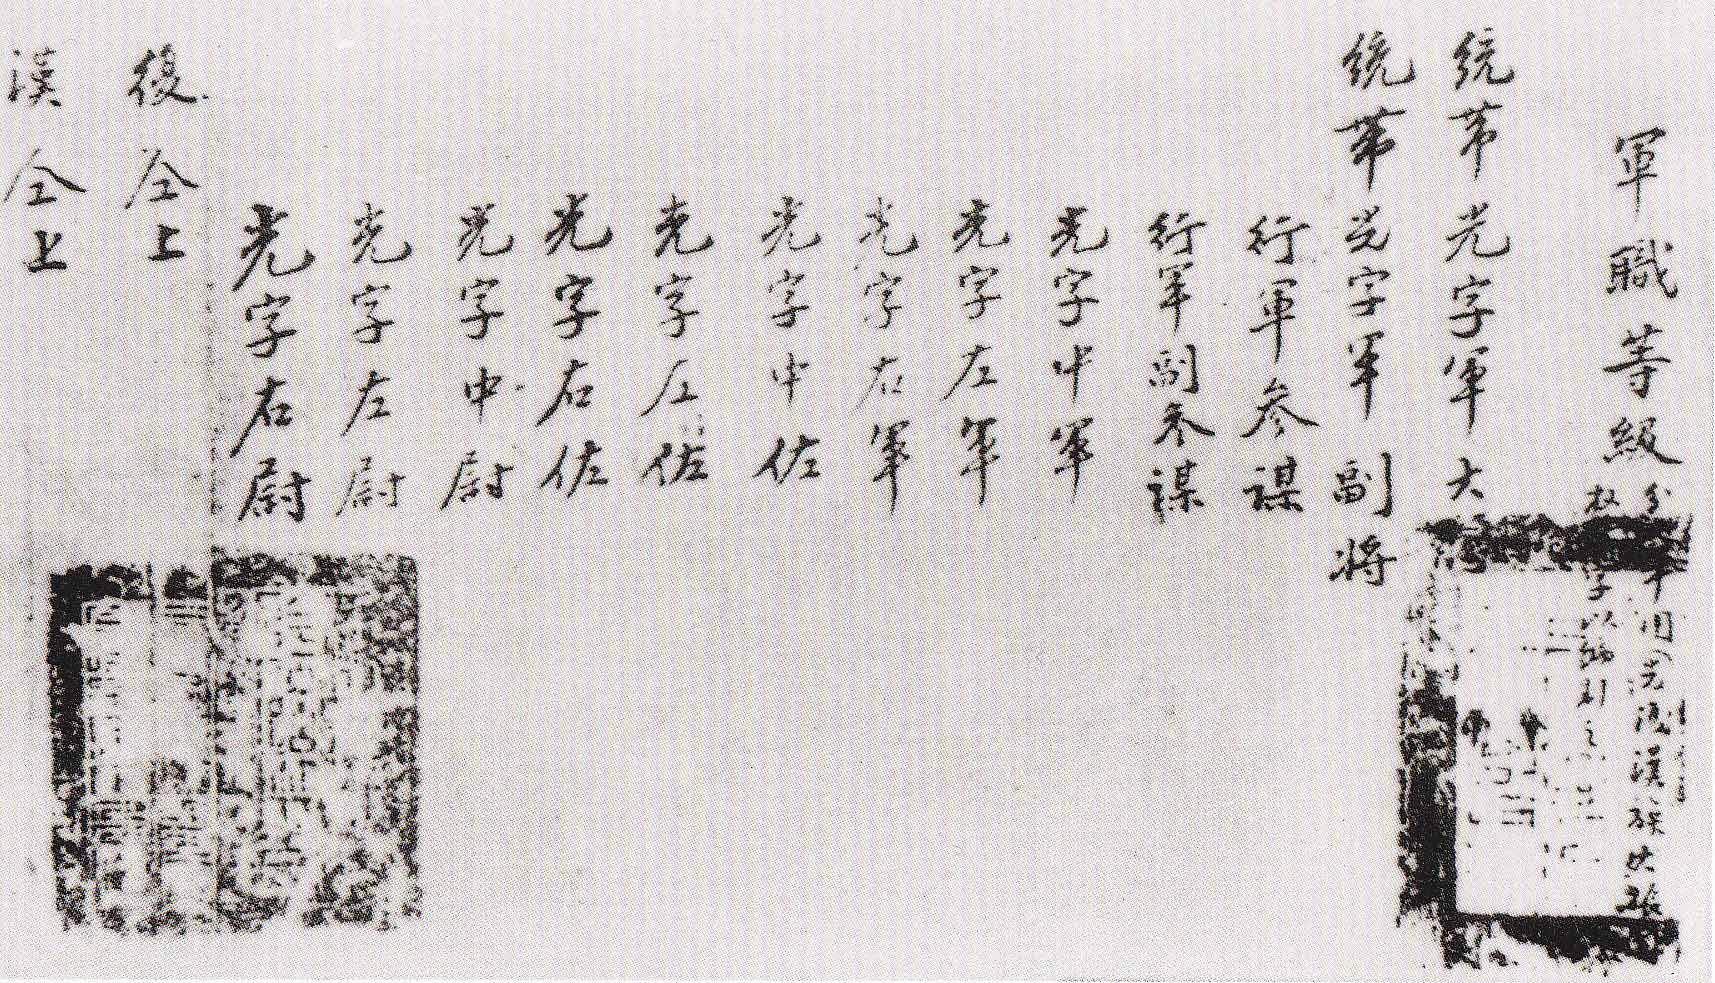 軍職等級
分 用光復漢族大振
字以
統帯光字軍大
統帯光字軍副將
行軍參謀
行軍副參謀
光字中軍
光字左軍
光字右軍
光字中佐
光字左佐
光字右佐
光字中尉
光字左尉
光字右尉
復仝上
漢仝上